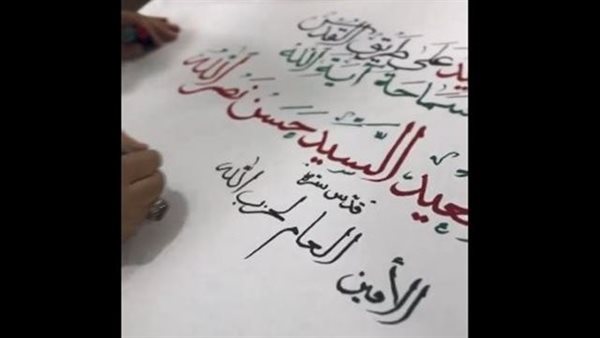 يد على طريق القدس
سماحة آية الله
عيد السيد حسن نصر الله
قدس سره
الأمين العام لحزب الله